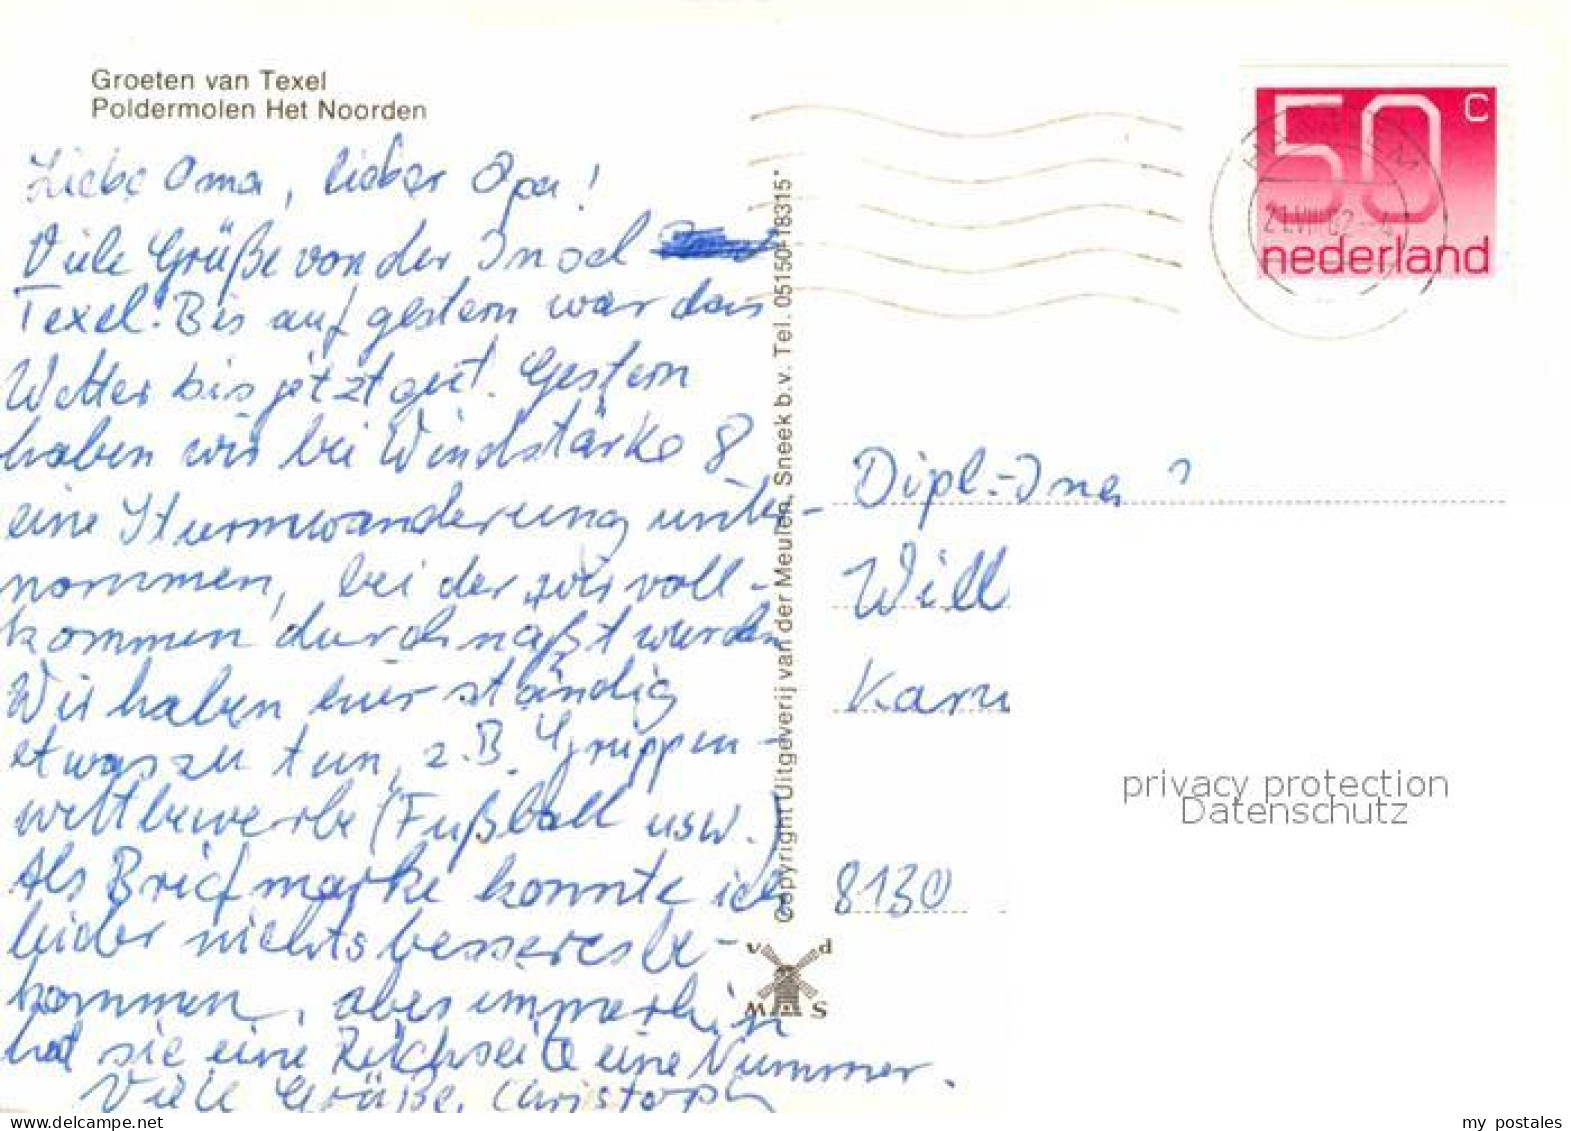 Groeten van Texel
Poldermolen Het Noorden
Liebe Oma, lieber Opa!
Viele Grüße von der Insel
Texel. Bis auf gestern war das
Wetter bis jetzt gut. Gestern
haben wir bei Windstärke 8
eine Sturmwanderung unter-
nommen, bei der wir voll-
kommen durchnäßt wurden
Wir haben hier ständig
etwas zu tun, z.B. Gruppen-
wettbewerbe (Fußball usw.)
Als Briefmarke konnte ich
leider nichts besseres be-
kommen, aber immerhin
hat sie eine Rückseite eine Nummer.
Viele Grüße, Christoph
Copyright Uitgeverij van der Meulen, Sneek b.v. Tel. 05150-18315*
v d
M S
50 c
nederland
Dipl.-Ing
Will
Karw
8130
privacy protection
Datenschutz
my postales